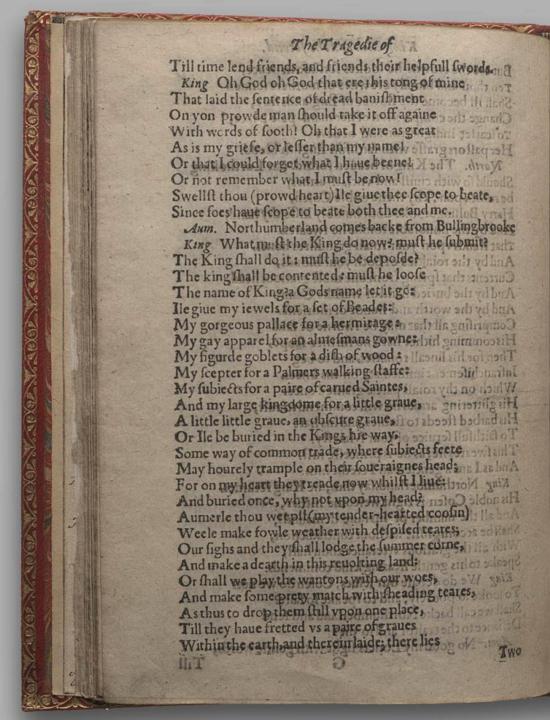 The Tragedie of
Till time lend friends, and friends their helpfull swords.
King Oh God oh God that ere this tong of mine
That laid the sentence of dread banishment
On yon prowde man should take it off againe
With words of sooth! Oh that I were as great
As is my griefe, or lesser than my name!
Or that I could forget what I haue beene!
Or not remember what I must be now!
Swellst thou (prowd heart) Ile giue thee scope to beate,
Since foes haue scope to beate both thee and me.
Aum. Northumberland comes backe from Bullingbrooke
King What must the King do now? must he submit?
The King shall do it: must he be deposde?
The king shall be contented: must he loose
The name of King? a Gods name let it go:
Ile giue my iewels for a set of Beades:
My gorgeous pallace for a hermitage:
My gay apparel for an almesmans gowne:
My figurde goblets for a dish of wood:
My scepter for a Palmers walking staffe:
My subiects for a paire of carued Saintes,
And my large kingdome for a little graue,
A little little graue, an obscure graue,
Or Ile be buried in the Kings hie way,
Some way of common trade, where subiects feete
May hourely trample on their soueraignes head;
For on my heart they treade now whilst I liue:
And buried once, why not vpon my head?
Aumerle thou weepst (my tender-hearted coosin)
Weele make fowle weather with despised teares;
Our sighs and they shall lodge the summer corne,
And make a dearth in this reuolting land:
Or shall we play the wantons with our woes,
And make some prety match with sheading teares,
As thus to drop them still vpon one place,
Till they haue fretted vs a paire of graues
Within the earth, and therein laide; there lies
Two